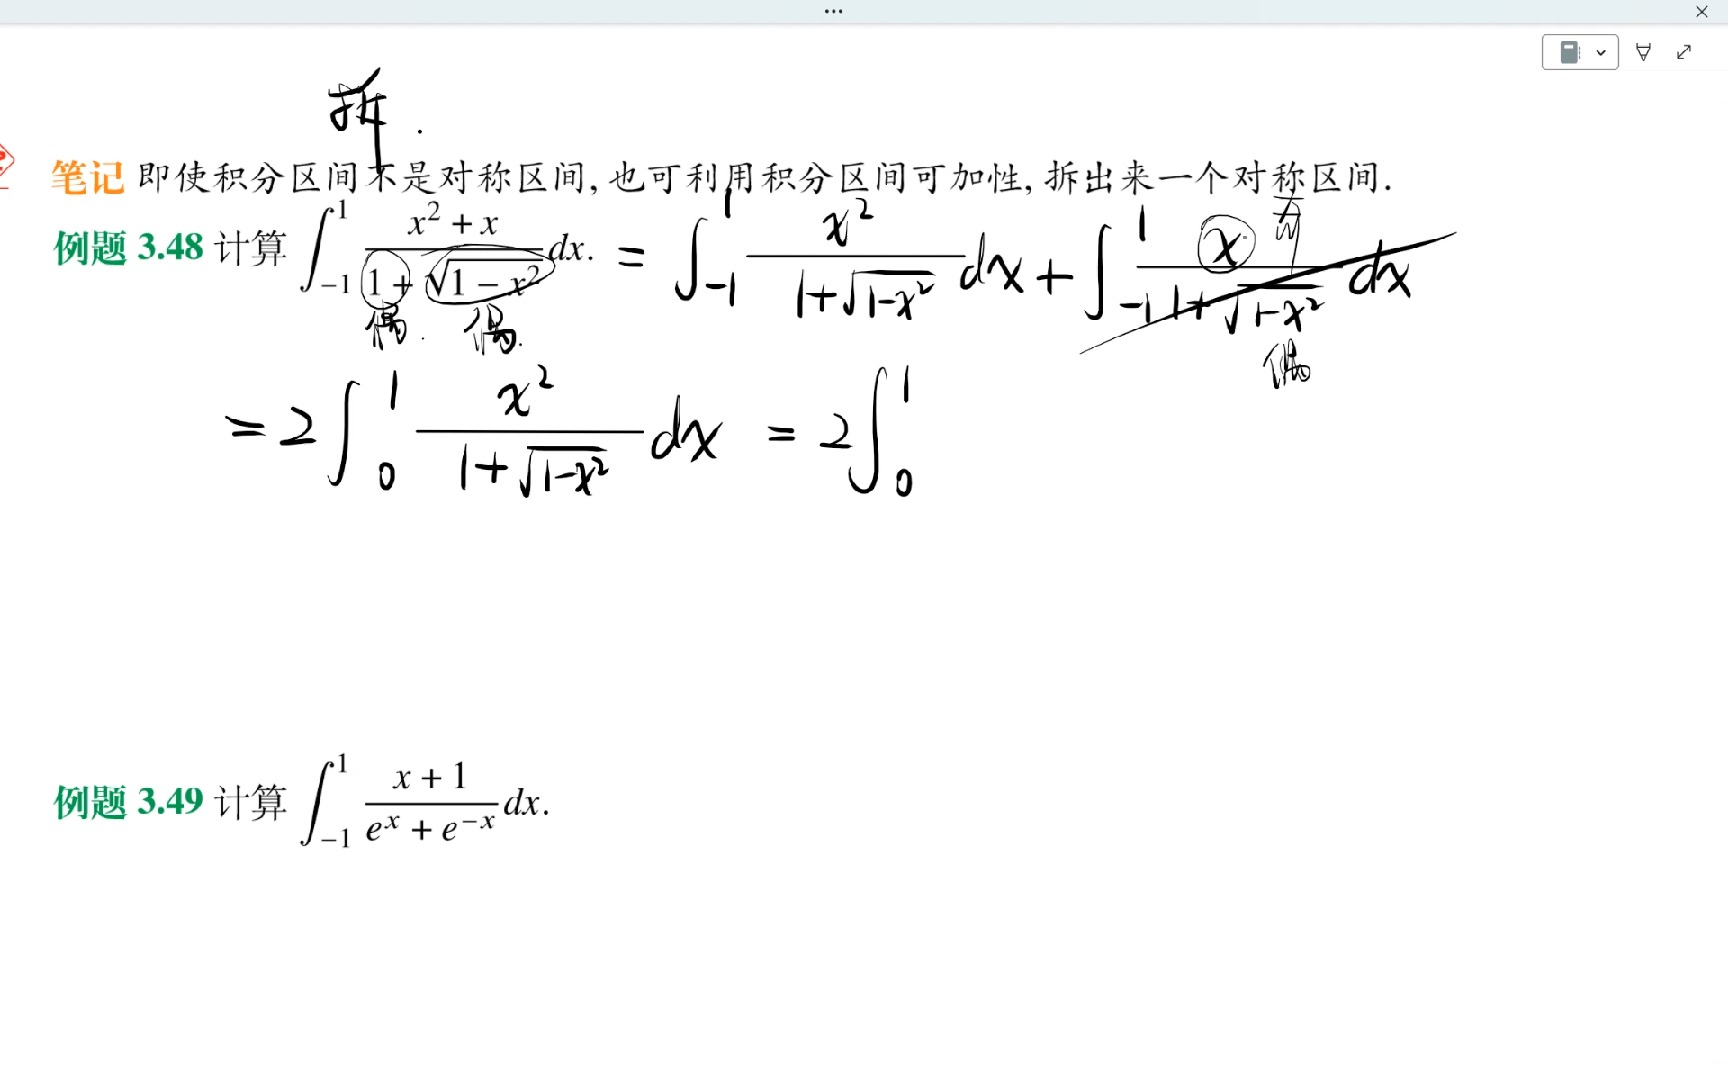 拆.
笔记 即使积分区间不是对称区间, 也可利用积分区间可加性, 拆出来一个对称区间.
例题 3.48 计算 ∫_{-1}^{1} (x² + x)/(1 + √(1 − x²)) dx. = ∫_{-1}^{1} x²/(1+√(1-x²)) dx + ∫_{-1}^{1} x/(1+√(1-x²)) dx
奇
偶. 偶.
偶
= 2∫_{0}^{1} x²/(1+√(1-x²)) dx = 2∫_{0}^{1}
例题 3.49 计算 ∫_{-1}^{1} (x + 1)/(eˣ + e⁻ˣ) dx.